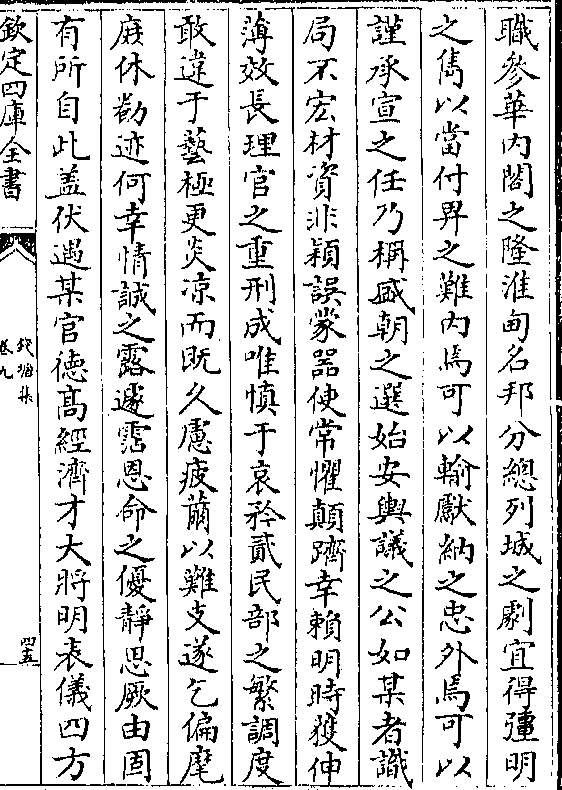 職參華内閣之隆淮甸名邦分總列城之劇宜得彊明
之雋以當付畀之難内焉可以輸獻納之忠外焉可以
謹承宣之任乃稱盛朝之選始安輿議之公如某者識
局不宏材資非穎誤蒙器使常懼顛躋幸賴明時獲伸
薄效長理官之重刑成唯慎于哀矜貳民部之繁調度
敢違于藝極更炎凉而既久慮疲薾以難支遂乞偏麾
庶休勌迹何幸情誠之露遽霑恩命之優靜思厥由固
有所自此盖伏遇某官徳髙經濟才大將明表儀四方
欽定四庫全書
錢塘集
卷九
四五